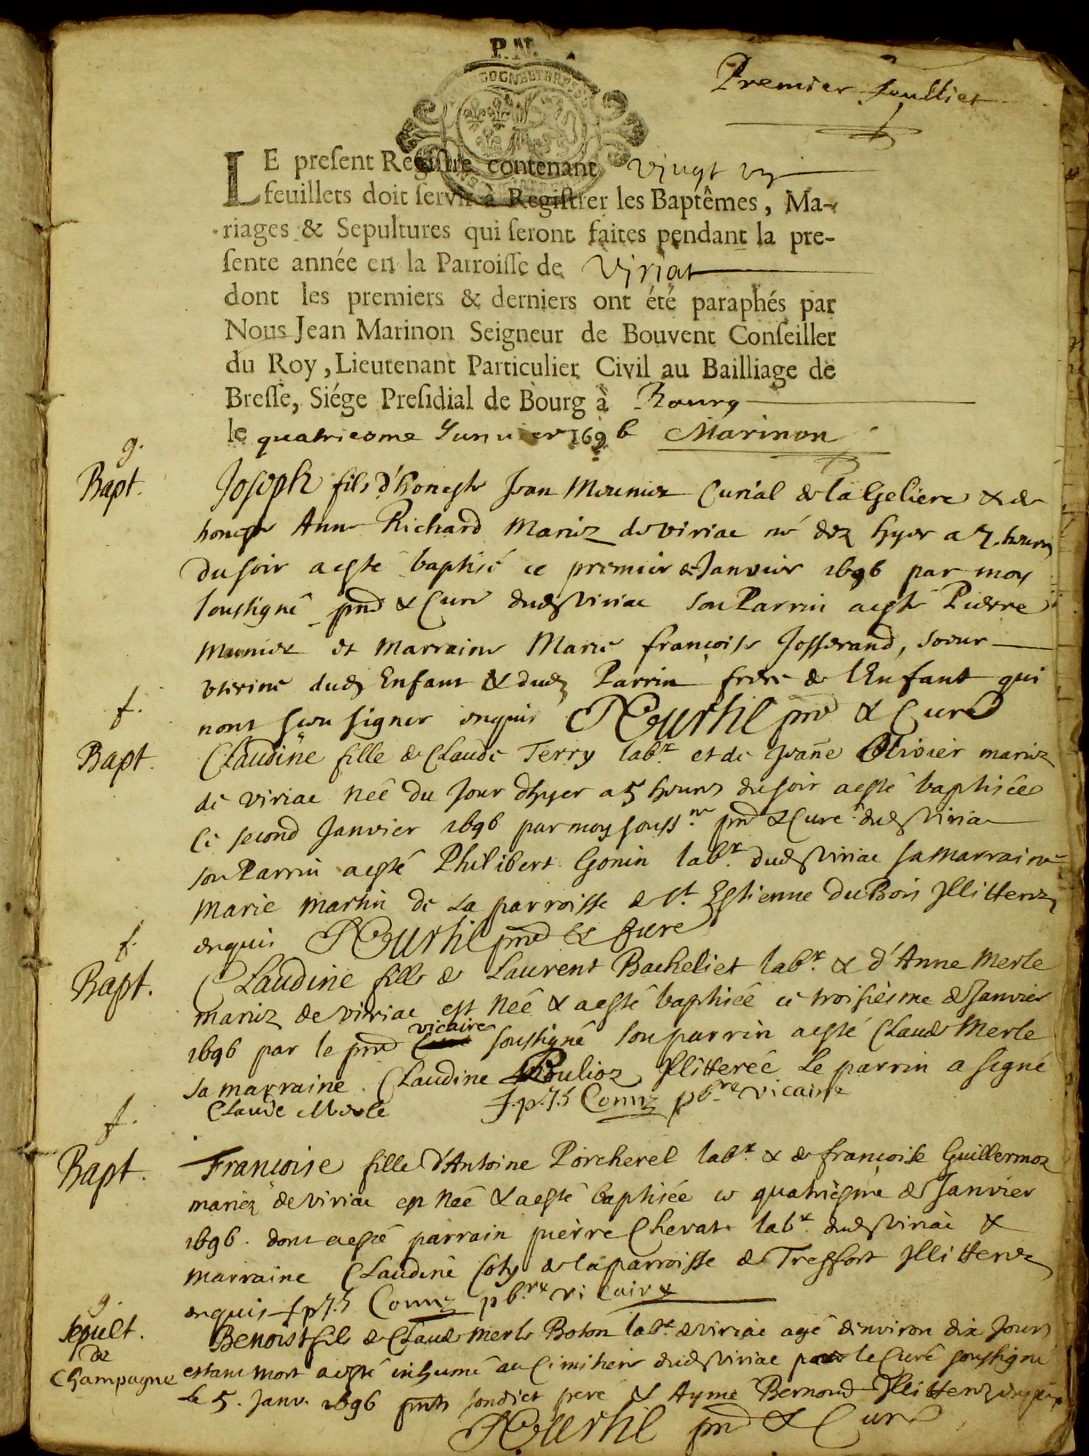 P. N.
Premier feulliet
LE preſent Regiſtre contenant vingt
feuillets doit ſervir à Regiſtrer les Baptêmes, Ma-
riages & Sepultures qui ſeront faites pendant la pre-
ſente année en la Parroiſſe de Viriat
dont les premiers & derniers ont été paraphés par
Nous Jean Marinon Seigneur de Bouvent Conſeiller
du Roy, Lieutenant Particulier Civil au Bailliage de
Breſſe, Siége Preſidial de Bourg à Bourg
le quatriesme Janvier 1696 Marinon
g.
Bapt. Joseph fils d'honeste Jean Meunier Curial de la Geliere & de
honeste Anne Richard Mariez de viriac né dez hyer a 7 heures
du soir a esté baptisé ce premier de Janvier 1696 par moy
soussigné & Curé dud. Viriac son Parrin a esté Pierre
Meunier et Marraine Marie françoise Josserand, soeur
uterine dud. Enfant & dud. Parrin frere de l'Enfant qui
nont sceu signer enquis & Curé
f.
Bapt. Claudine fille de Claude Terry labr. et de Jeañe Olivier mariez
de viriac Neé du Jour dhyer a 5 heures du soir a esté baptisée
Ce second Janvier 1696 par moy souss.né & Curé dud. Viriac
son Parrin a esté Philibert Gonin labr. dud. Viriac sa Marraine
Marie Martin de la parroisse de St. Estienne Du Bois Jllitterez
enquis & Curé
f.
Bapt. Claudine fille de Laurent Bacheliet labr. & d'Anne Merle
mariez de viriac est Neé & a esté baptisée ce troisiesme de Janvier
1696 par le vicaire soussigné son parrin a esté Claude Merle
sa marraine Claudine Poulioz Jllitereé Le parrin a signé
Claude Merle pbre vicaire
f.
Bapt. Francoise fille d'Antoine Porcherel labr. & de francoise Guillermoz
mariez de viriac est Neé & a esté baptisée ce quatriesme de Janvier
1696. dont a esté parrain pierre Chevat labr. dud. Viriac &
marraine Claudine de la parroisse de Treffort Jllitterez
enquis pbre vicaire
g.
sepult. Benoist fils de Claude Merle Boton labr. de viriac agé d'environ dix Jours
de
Champagne estant mort a esté inhumé au Cimitiere dud. Viriac par le Curé soussigné
Le 5. Janv. 1696 sondict pere & Aymé Bernoud Jllitterez enquis
& Curé